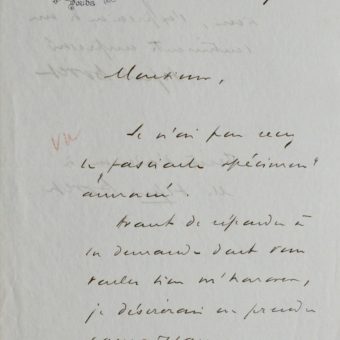 Monsieur,
Je n'ai pas reçu
le fascicule spécimen
annoncé.
Avant de répondre à
la demande dont vous
voulez bien m'honorer,
je désirerais en prendre
vu